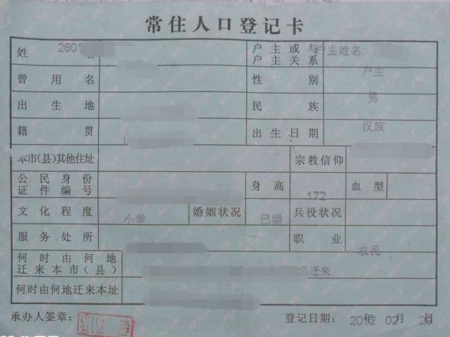 常住人口登记卡
姓 名 户主或与
户主关系 户主姓名:
户主
曾用名 性别
男
出生地 民族
汉族
籍贯 出生日期
本市(县)其他住址 宗教信仰
公民身份
证件编号 身高 172 血型
文化程度 小学 婚姻状况 已婚 兵役状况
服务处所 职业 农民
何时由何地
迁来本市(县) 迁来
何时由何地迁来本址
承办人签章: 登记日期: 年 02 月 日